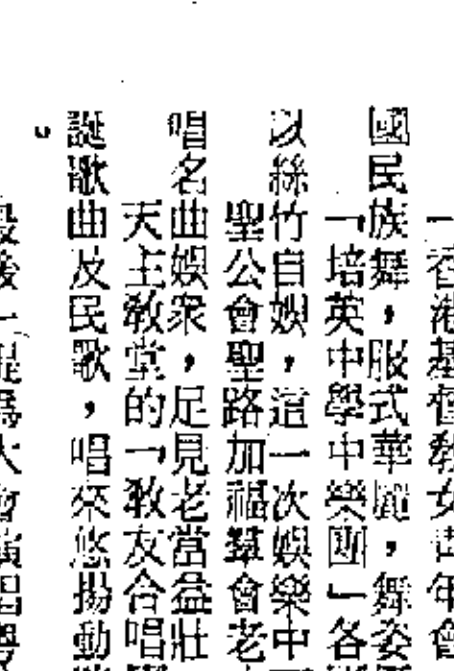 一香港基督教女青年會
國民族舞，服式華麗，舞姿
「培英中學中樂團」各
以絲竹自娛，這一次娛樂中
聖公會聖路加福羣會老
唱名曲娛衆，足見老當益壯
天主教堂的「教友合唱
誕歌曲及民歌，唱來悠揚動
。
最後一項爲大會演唱粵